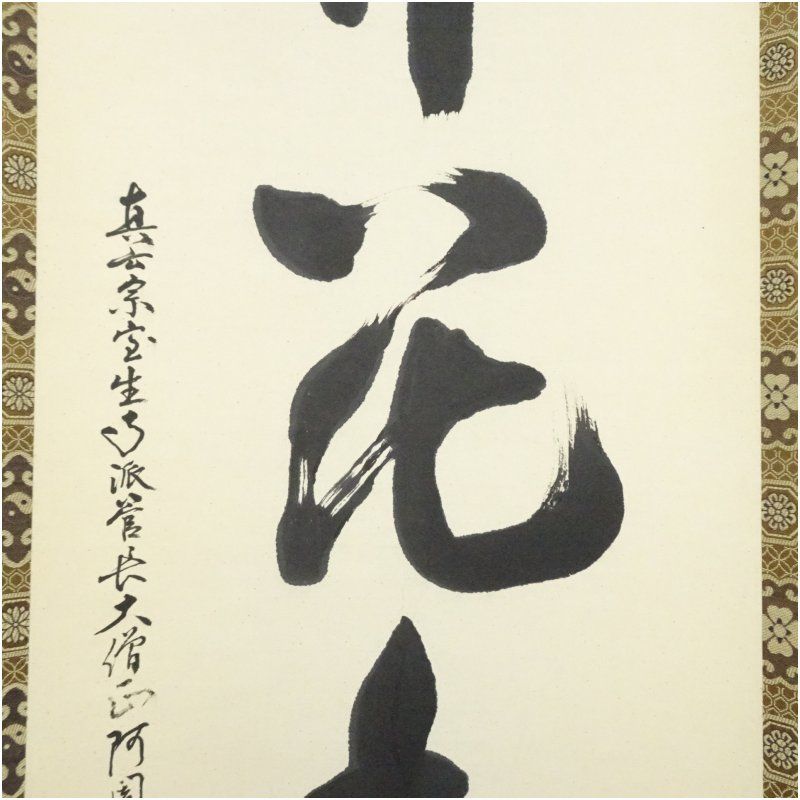 花
真言宗室生寺派管長大僧正阿闍